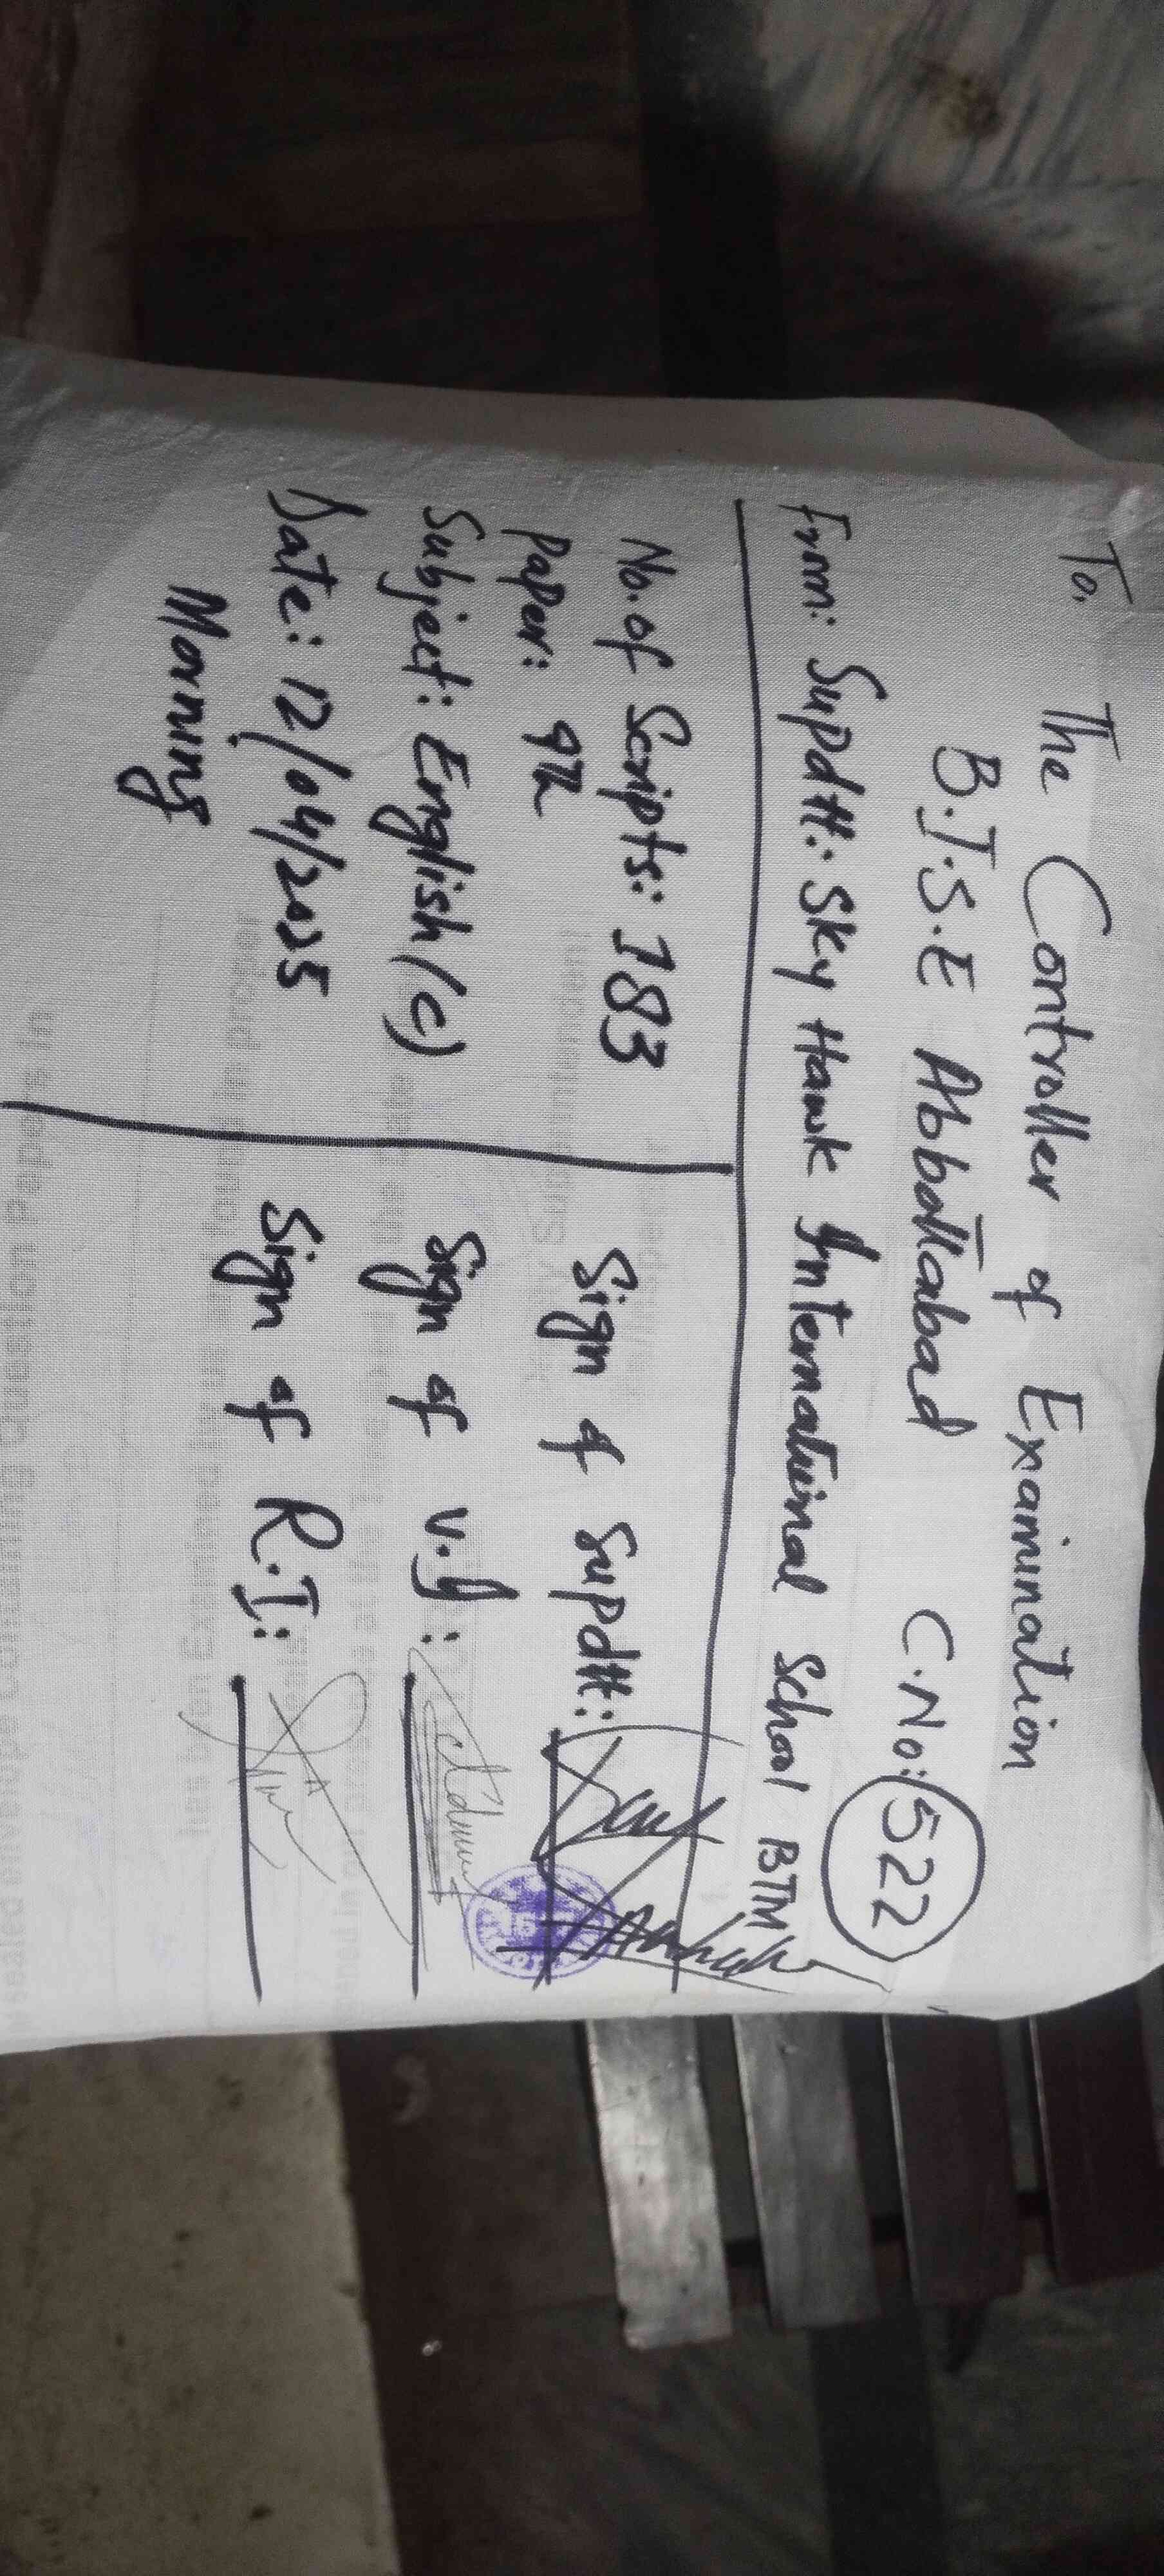 To,
The Controller of Examination
B.I.S.E Abbottabad C.No: 522
From: Supdtt: Sky Hawk International School BTM
No. of Scripts: 183
Paper: 9th
Subject: English (C)
Date: 12/04/2025
Morning
Sign of Supdtt:
Sign of V.I:
Sign of R.I: